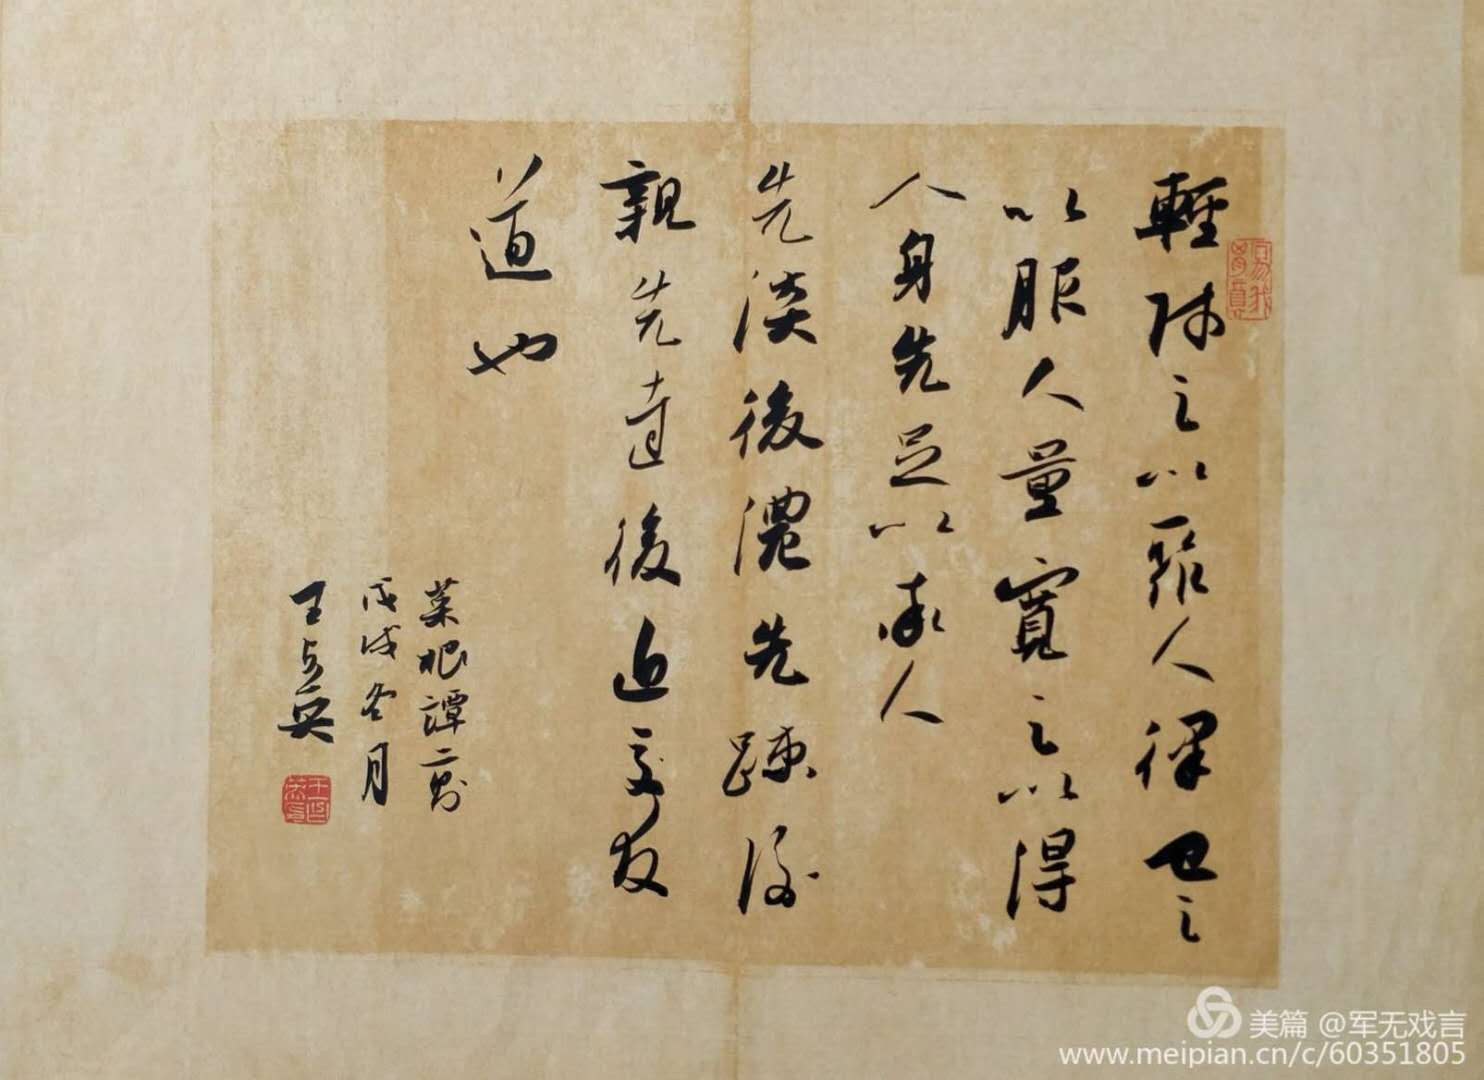 輕財足以聚人律己足
以服人量寬足以得
人身先足以率人
先淡後濃先疎後
親先遠後近交友
道也
菜根譚二則
戊戌冬月
王英
美篇 @军无戏言
www.meipian.cn/c/60351805